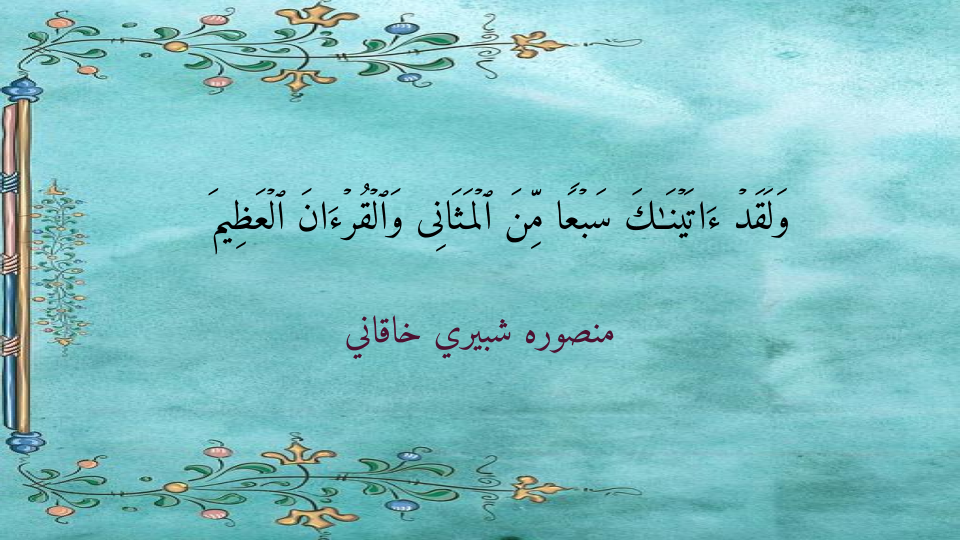 وَلَقَدۡ ءَاتَيۡنَٰكَ سَبۡعٗا مِّنَ ٱلۡمَثَانِي وَٱلۡقُرۡءَانَ ٱلۡعَظِيمَ
منصوره شبيري خاقاني